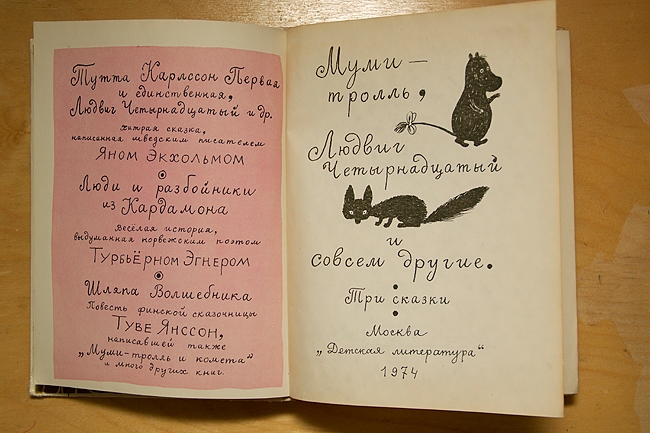 Тутта Карлссон Первая
и единственная,
Людвиг Четырнадцатый и др.
хитрая сказка,
написанная шведским писателем
Яном Экхольмом
Люди и разбойники
из Кардамона
Весёлая история,
выдуманная норвежским поэтом
Турбьёрном Эгнером
Шляпа Волшебника
Повесть финской сказочницы
Туве Янссон,
написавшей также
„Муми-тролль и комета“
и много других книг.
Муми—
тролль,
Людвиг
Четырнадцатый
и
совсем другие.
Три сказки
Москва
„Детская литература“
1974